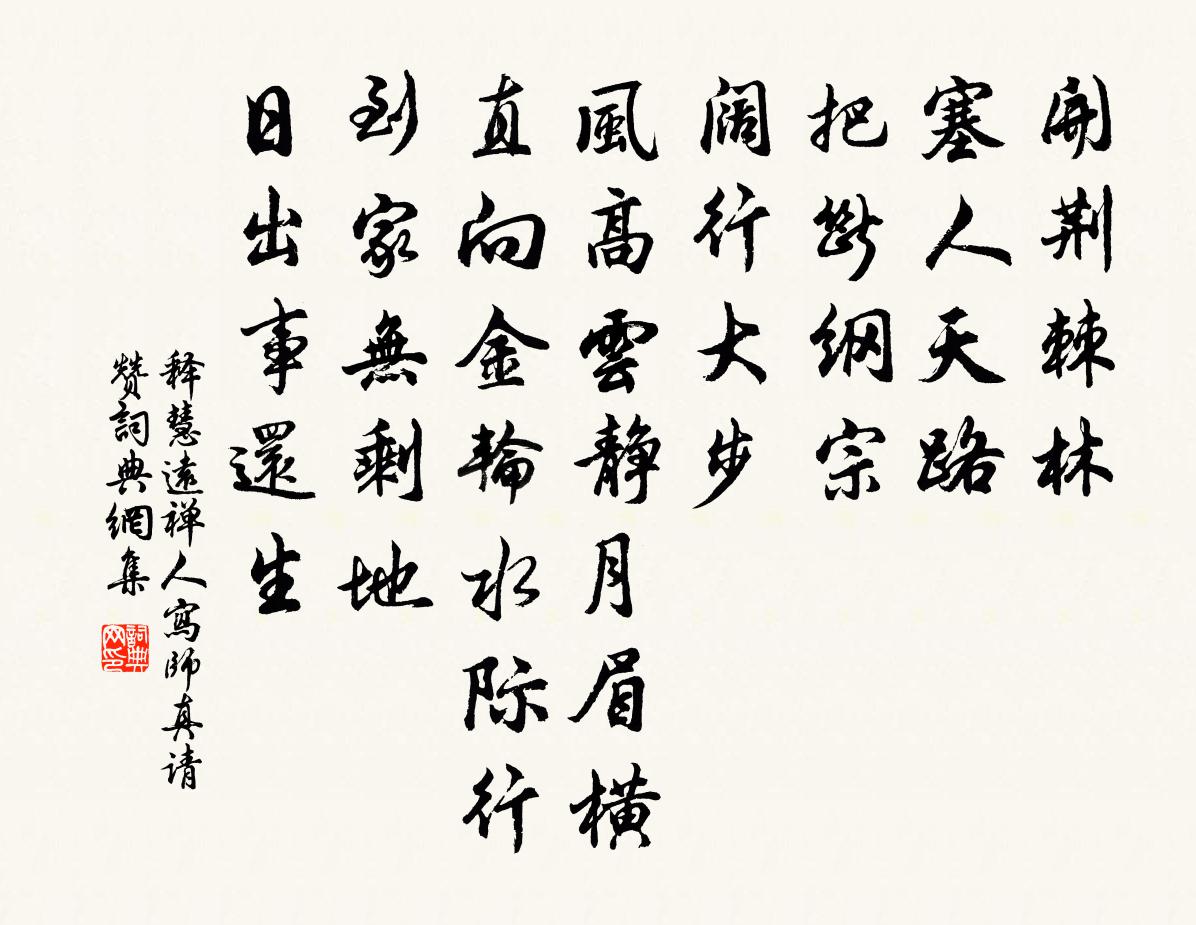 開荆棘林
塞人天路
把断綱宗
闊行大步
風高雲静月眉横
直向金輪水际行
到家無剩地
日出事還生
释慧遠禅人寫師真请
赞詞典網集
詞典
网印